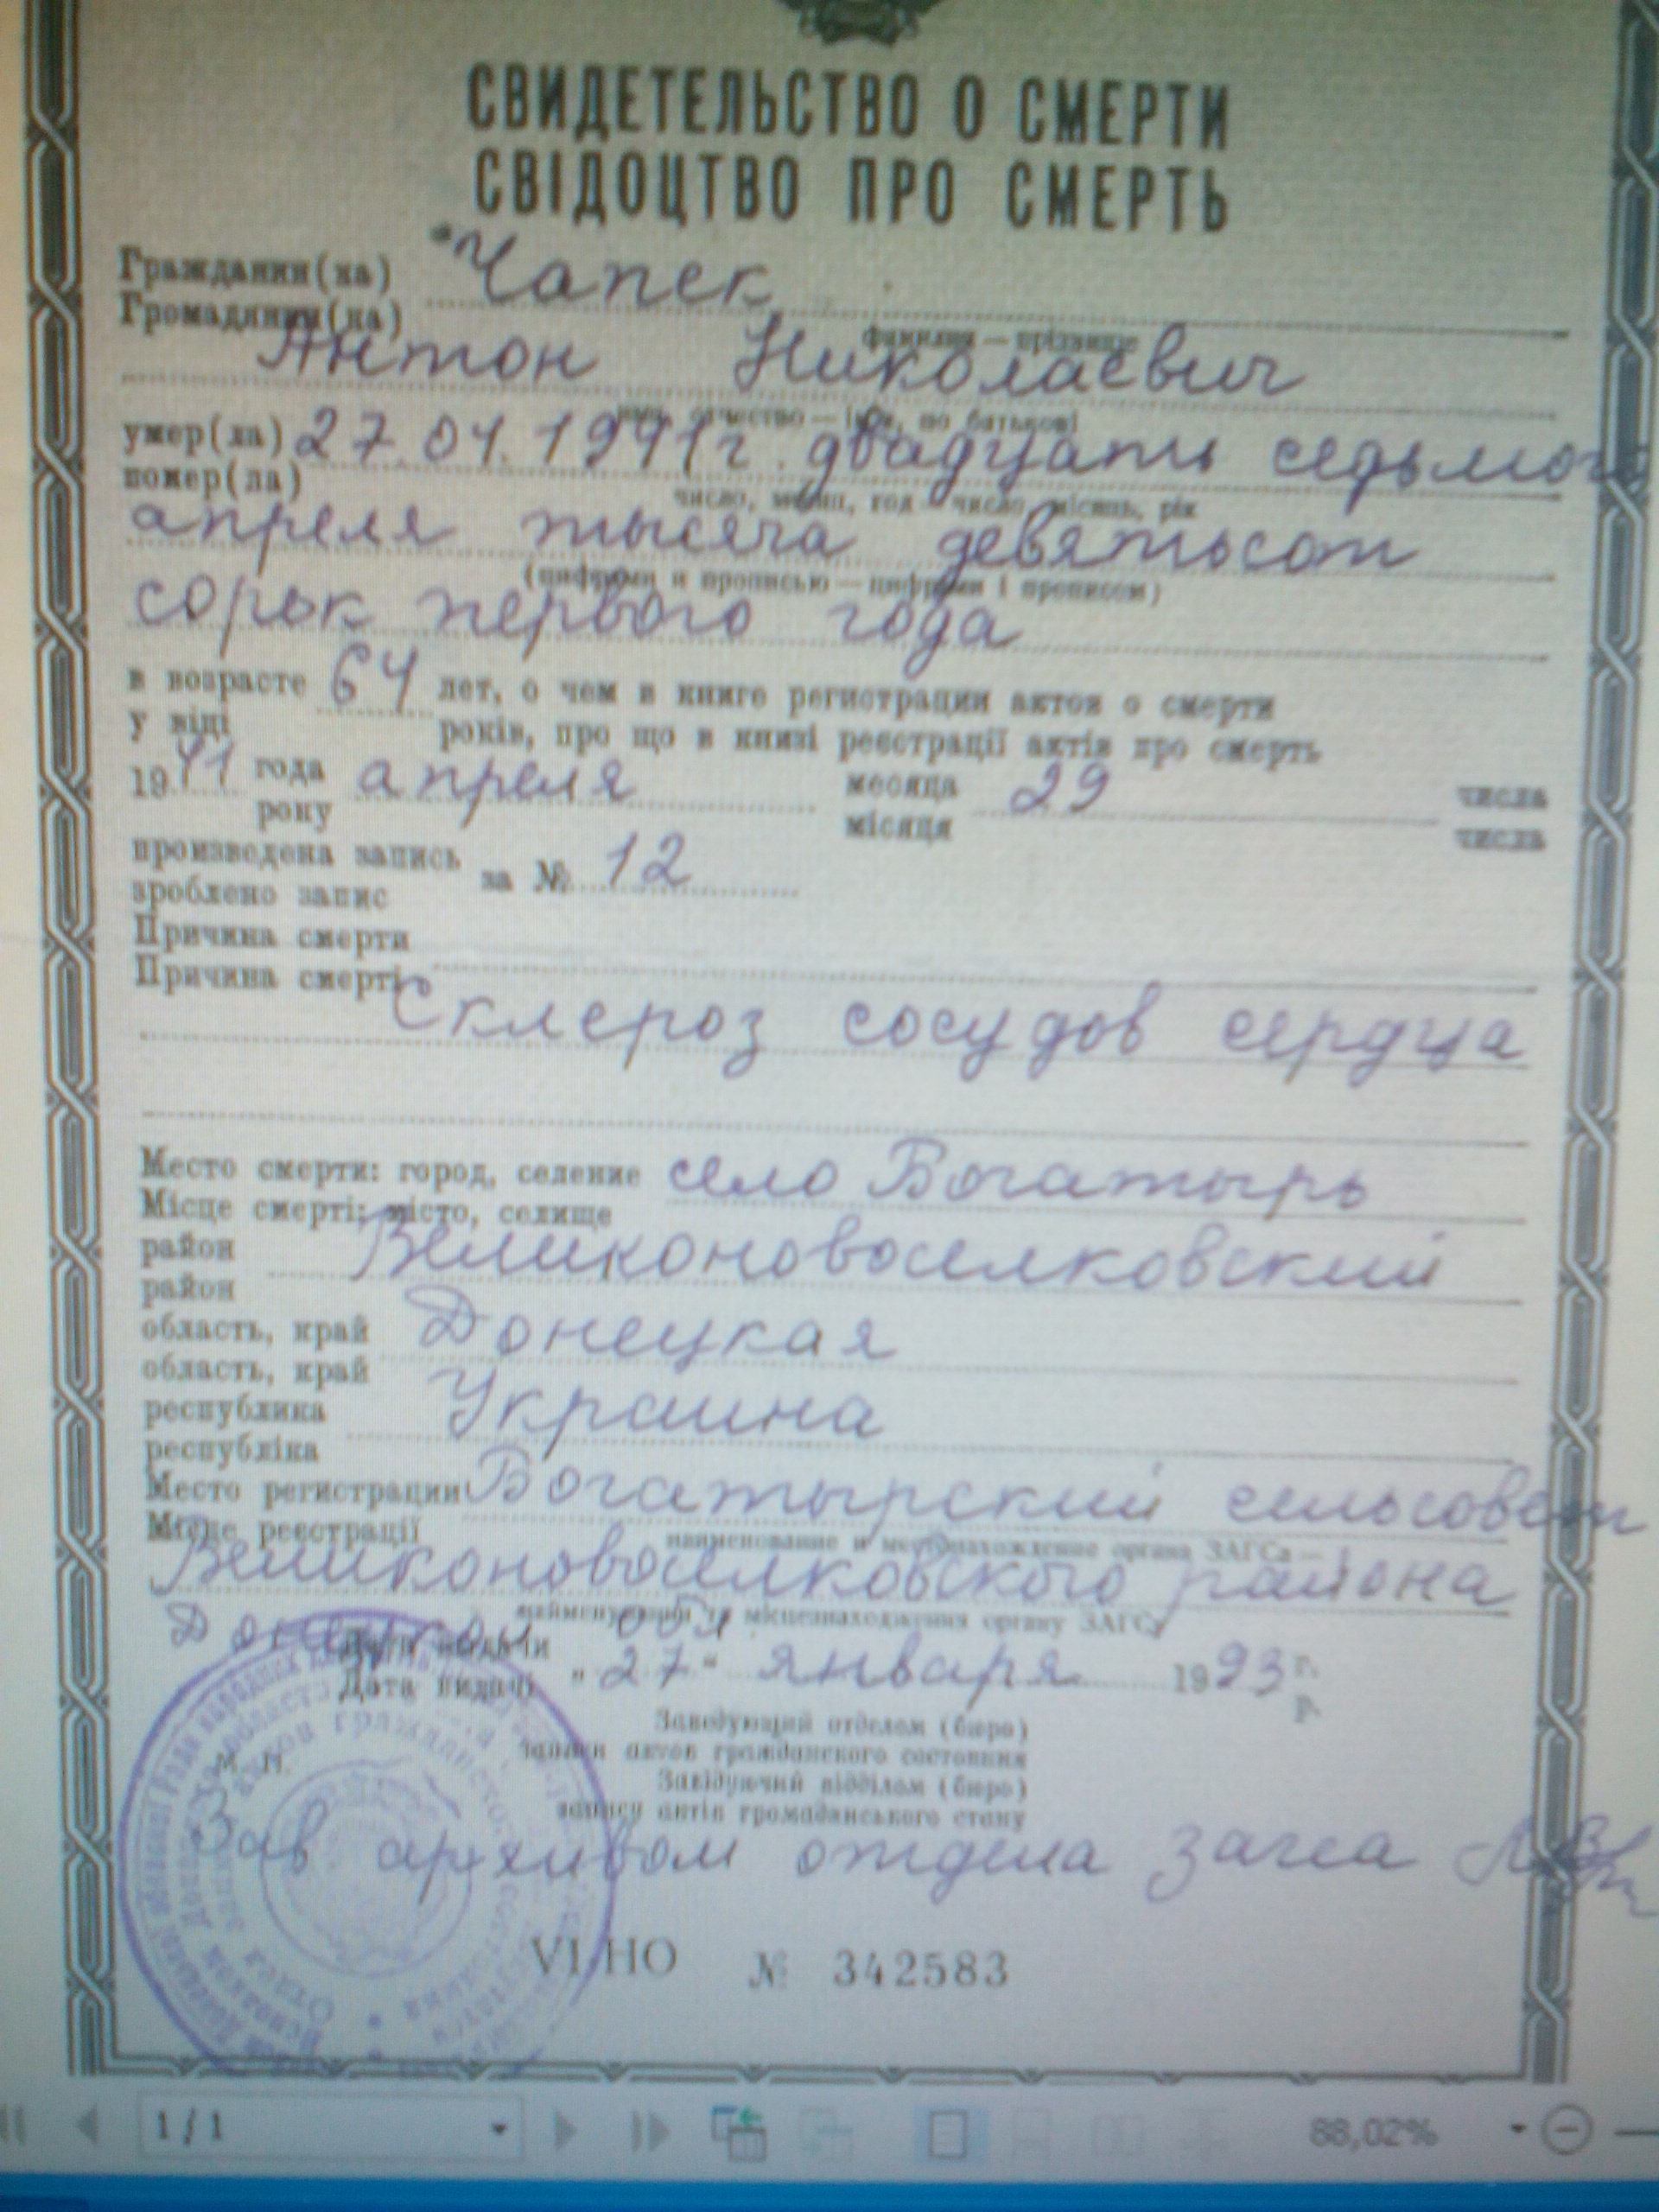 СВИДЕТЕЛЬСТВО О СМЕРТИ
СВІДОЦТВО ПРО СМЕРТЬ
Гражданин(ка) Чапек
Громадянин(ка)
фамилия — прізвище
Антон Николаевич
имя, отчество — ім'я, по батькові
умер(ла) 27.04.1941г. двадцать седьмого
помер(ла)
число, месяц, год — число, місяць, рік
апреля тысяча девятьсот
(цифрами и прописью — цифрами і прописом)
сорок первого года
в возрасте 64 лет, о чем в книге регистрации актов о смерти
у віці років, про що в книзі реєстрації актів про смерть
1941 года апреля месяца 29 числа
року місяця числа
произведена запись за № 12
зроблено запис
Причина смерти
Причина смерті
Склероз сосудов сердца
Место смерти: город, селение село Богатырь
Місце смерті: місто, селище
район Великоновоселковский
район
область, край Донецкая
область, край
республика Украина
республіка
Место регистрации Богатырский сельсовет
Місце реєстрації
наименование и местонахождение органа ЗАГСа —
Великоновоселковского района
найменування та місцезнаходження органу ЗАГСу
Донецкой обл.
Дата выдачи „27“ января 1993 г.
Дата видачі р.
Заведующий отделом (бюро)
записи актов гражданского состояния
М. П.
Завідуючий відділом (бюро)
запису актів громадянського стану
Зав архивом отдела загса
VI НО № 342583
1 / 1
88,02%